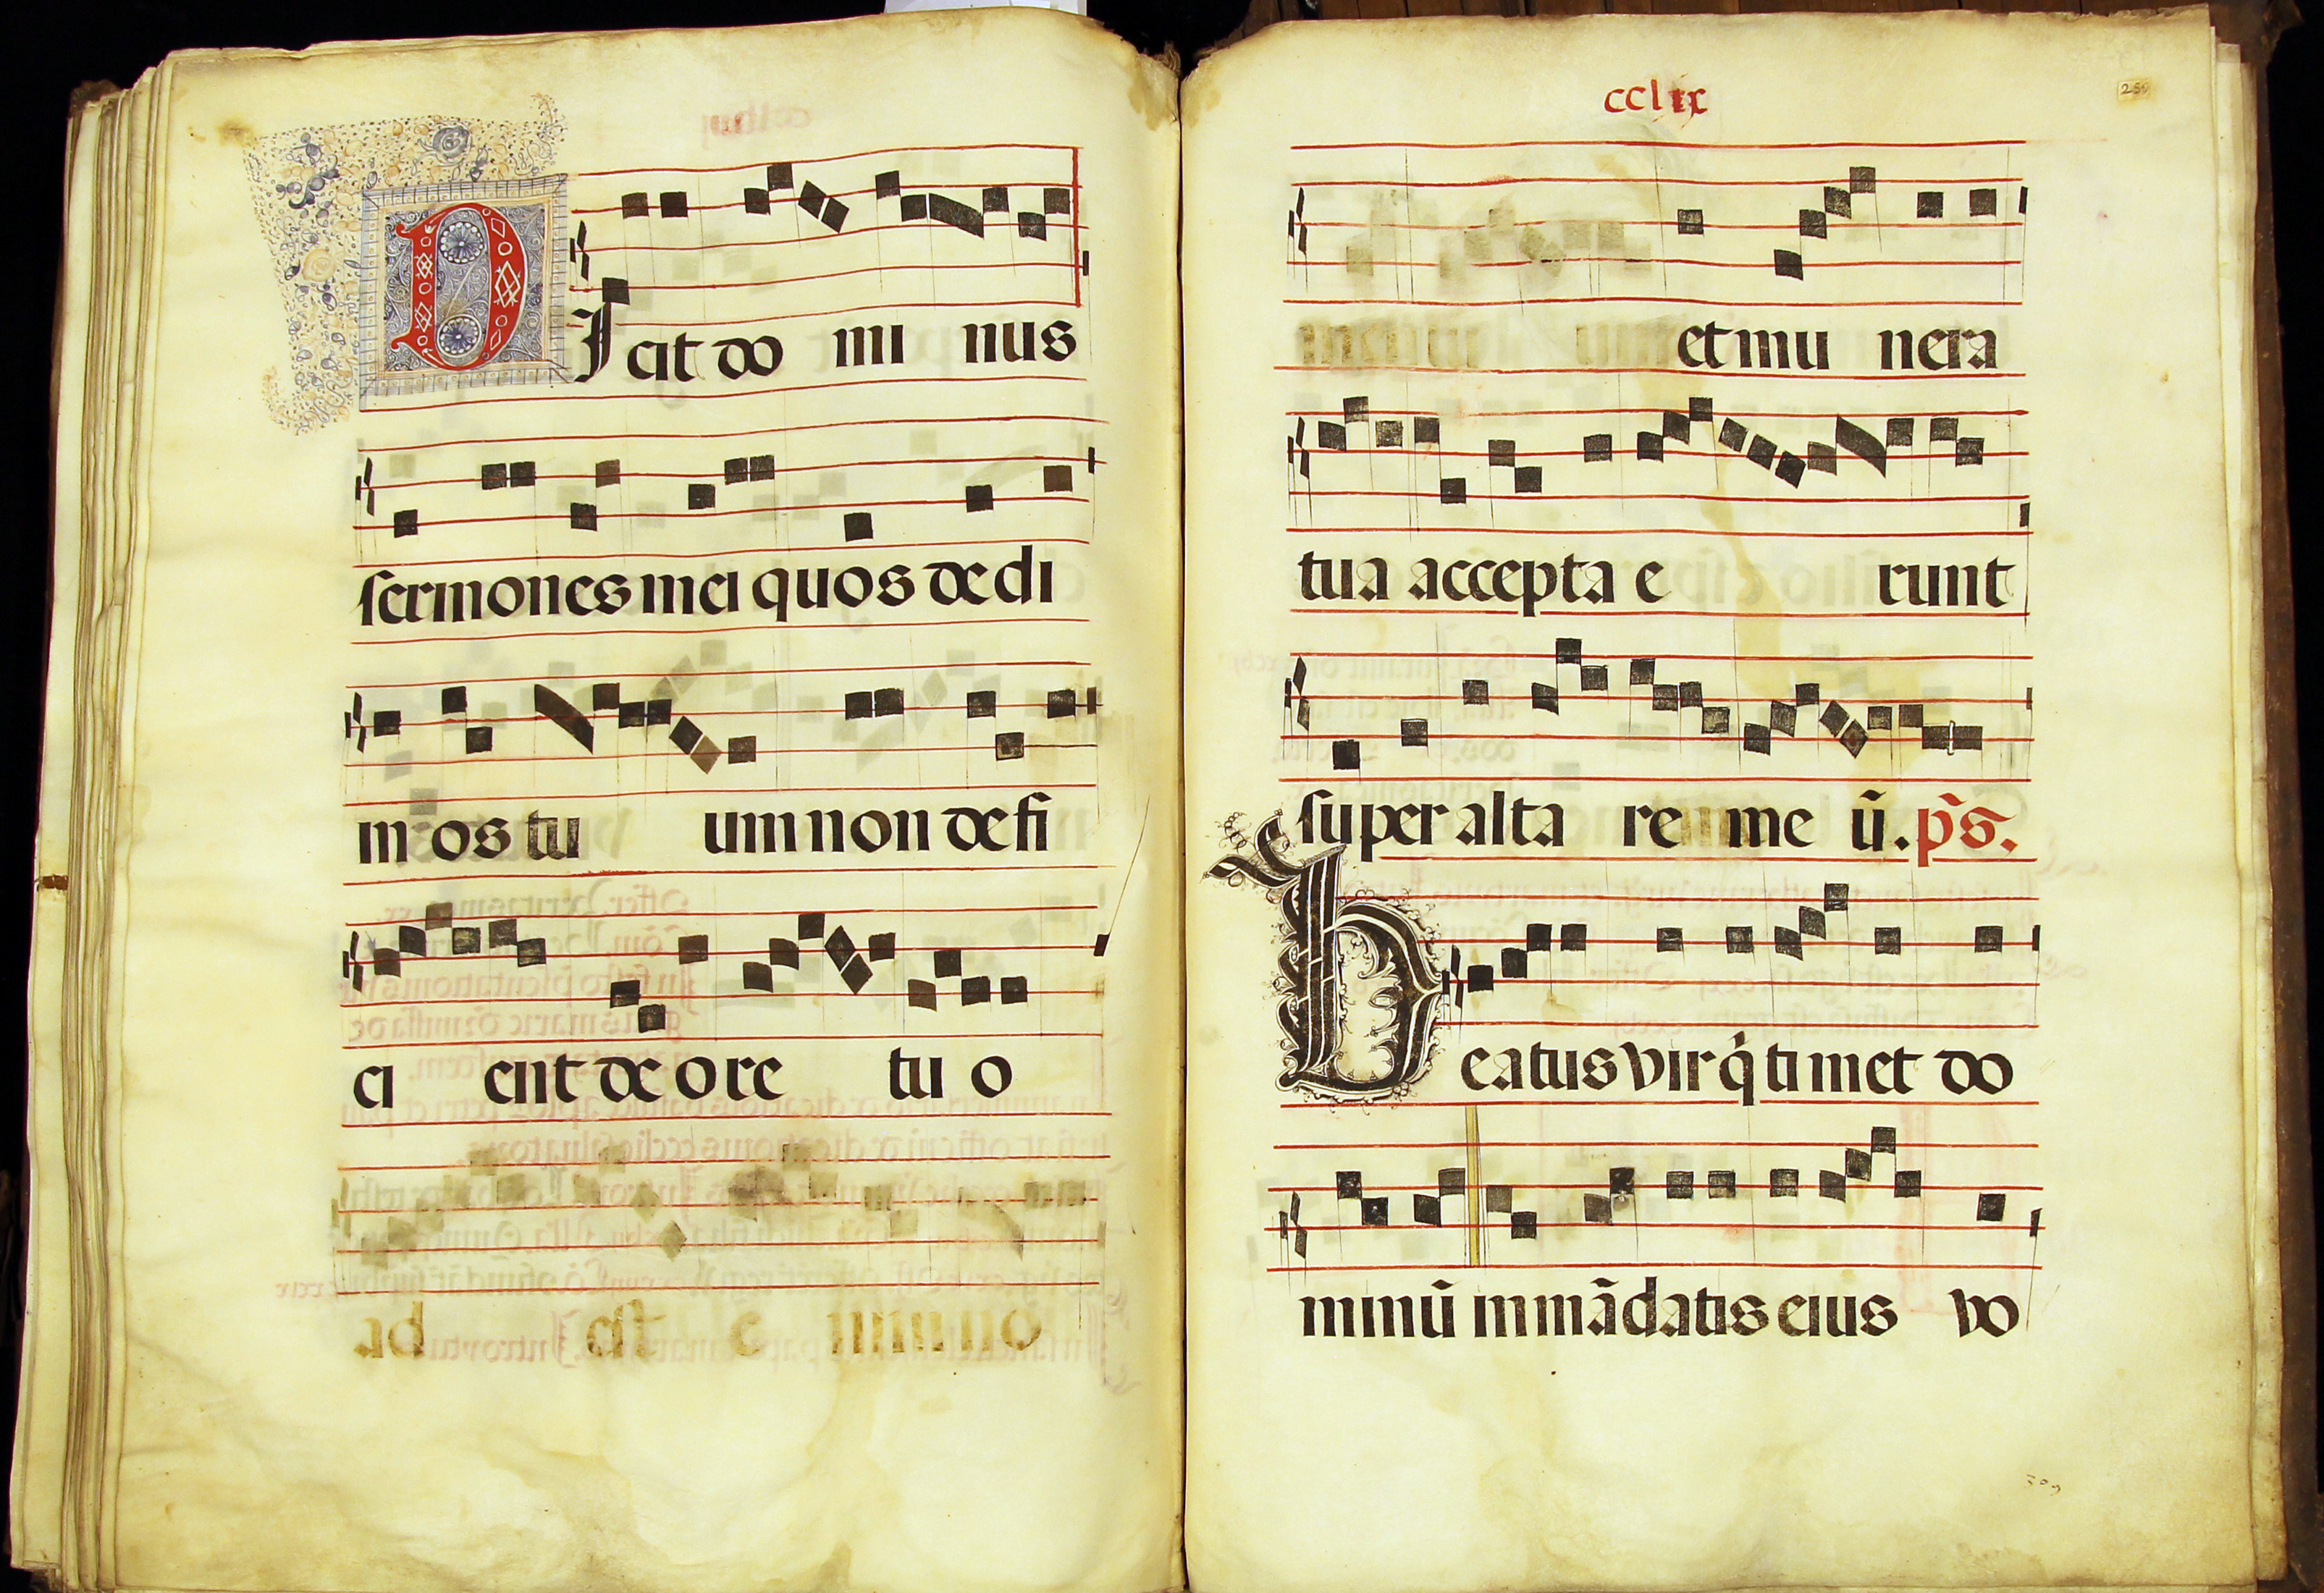 DIcit do mi nus
sermones mei quos dedi
in os tu um non defi
ci ent de ore tu o
ad est e nim no
cclix
259
et mu nera
tua accepta e runt
super altare me ũ. p̃s.
Beatus vir q̇ timet do
minũ in mãdatis eius vo
309